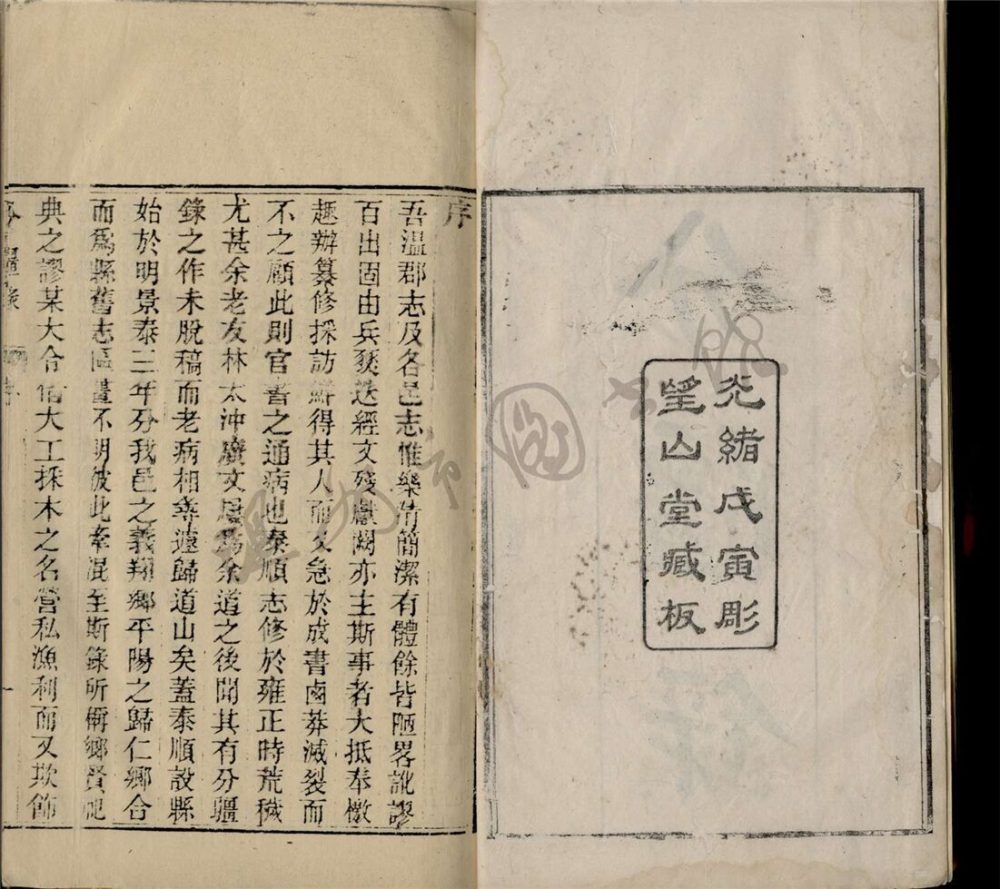 光緒戊寅彫
望山堂藏板
序
吾溫郡志及各邑志惟樂清簡潔有體餘皆陋畧訛謬
百出固由兵燹迭經文殘獻闕亦主斯事者大抵奉檄
趣辦纂修採訪鮮得其人而又急於成書鹵莽滅裂而
不之顧此則官書之通病也泰順志修於雍正時荒穢
尤甚余老友林太沖廣文屢為余道之後聞其有分疆
錄之作未脫稿而老病相等遽歸道山矣蓋泰順設縣
始於明景泰三年分我邑之義翔鄉平陽之歸仁鄉合
而爲縣舊志區畫不明彼此牽混至斯錄所偁鄉賢祀
典之謬某大合偕大工採木之名營私漁利而又欺飾
分疆錄
序
一